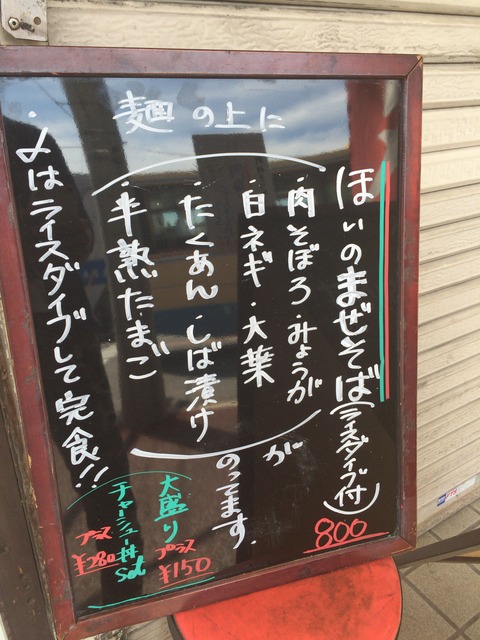 ほいのまぜそば(ライスダイブ付)
800
麺の上に
・肉そぼろ・みょうが
・白ネギ・大葉
・たくあん・しば漬け
・半熟たまご
が
のってます。
・〆はライスダイブして完食!!
大盛り
プラス
¥150
チャーシュー丼
set
プラス
¥280